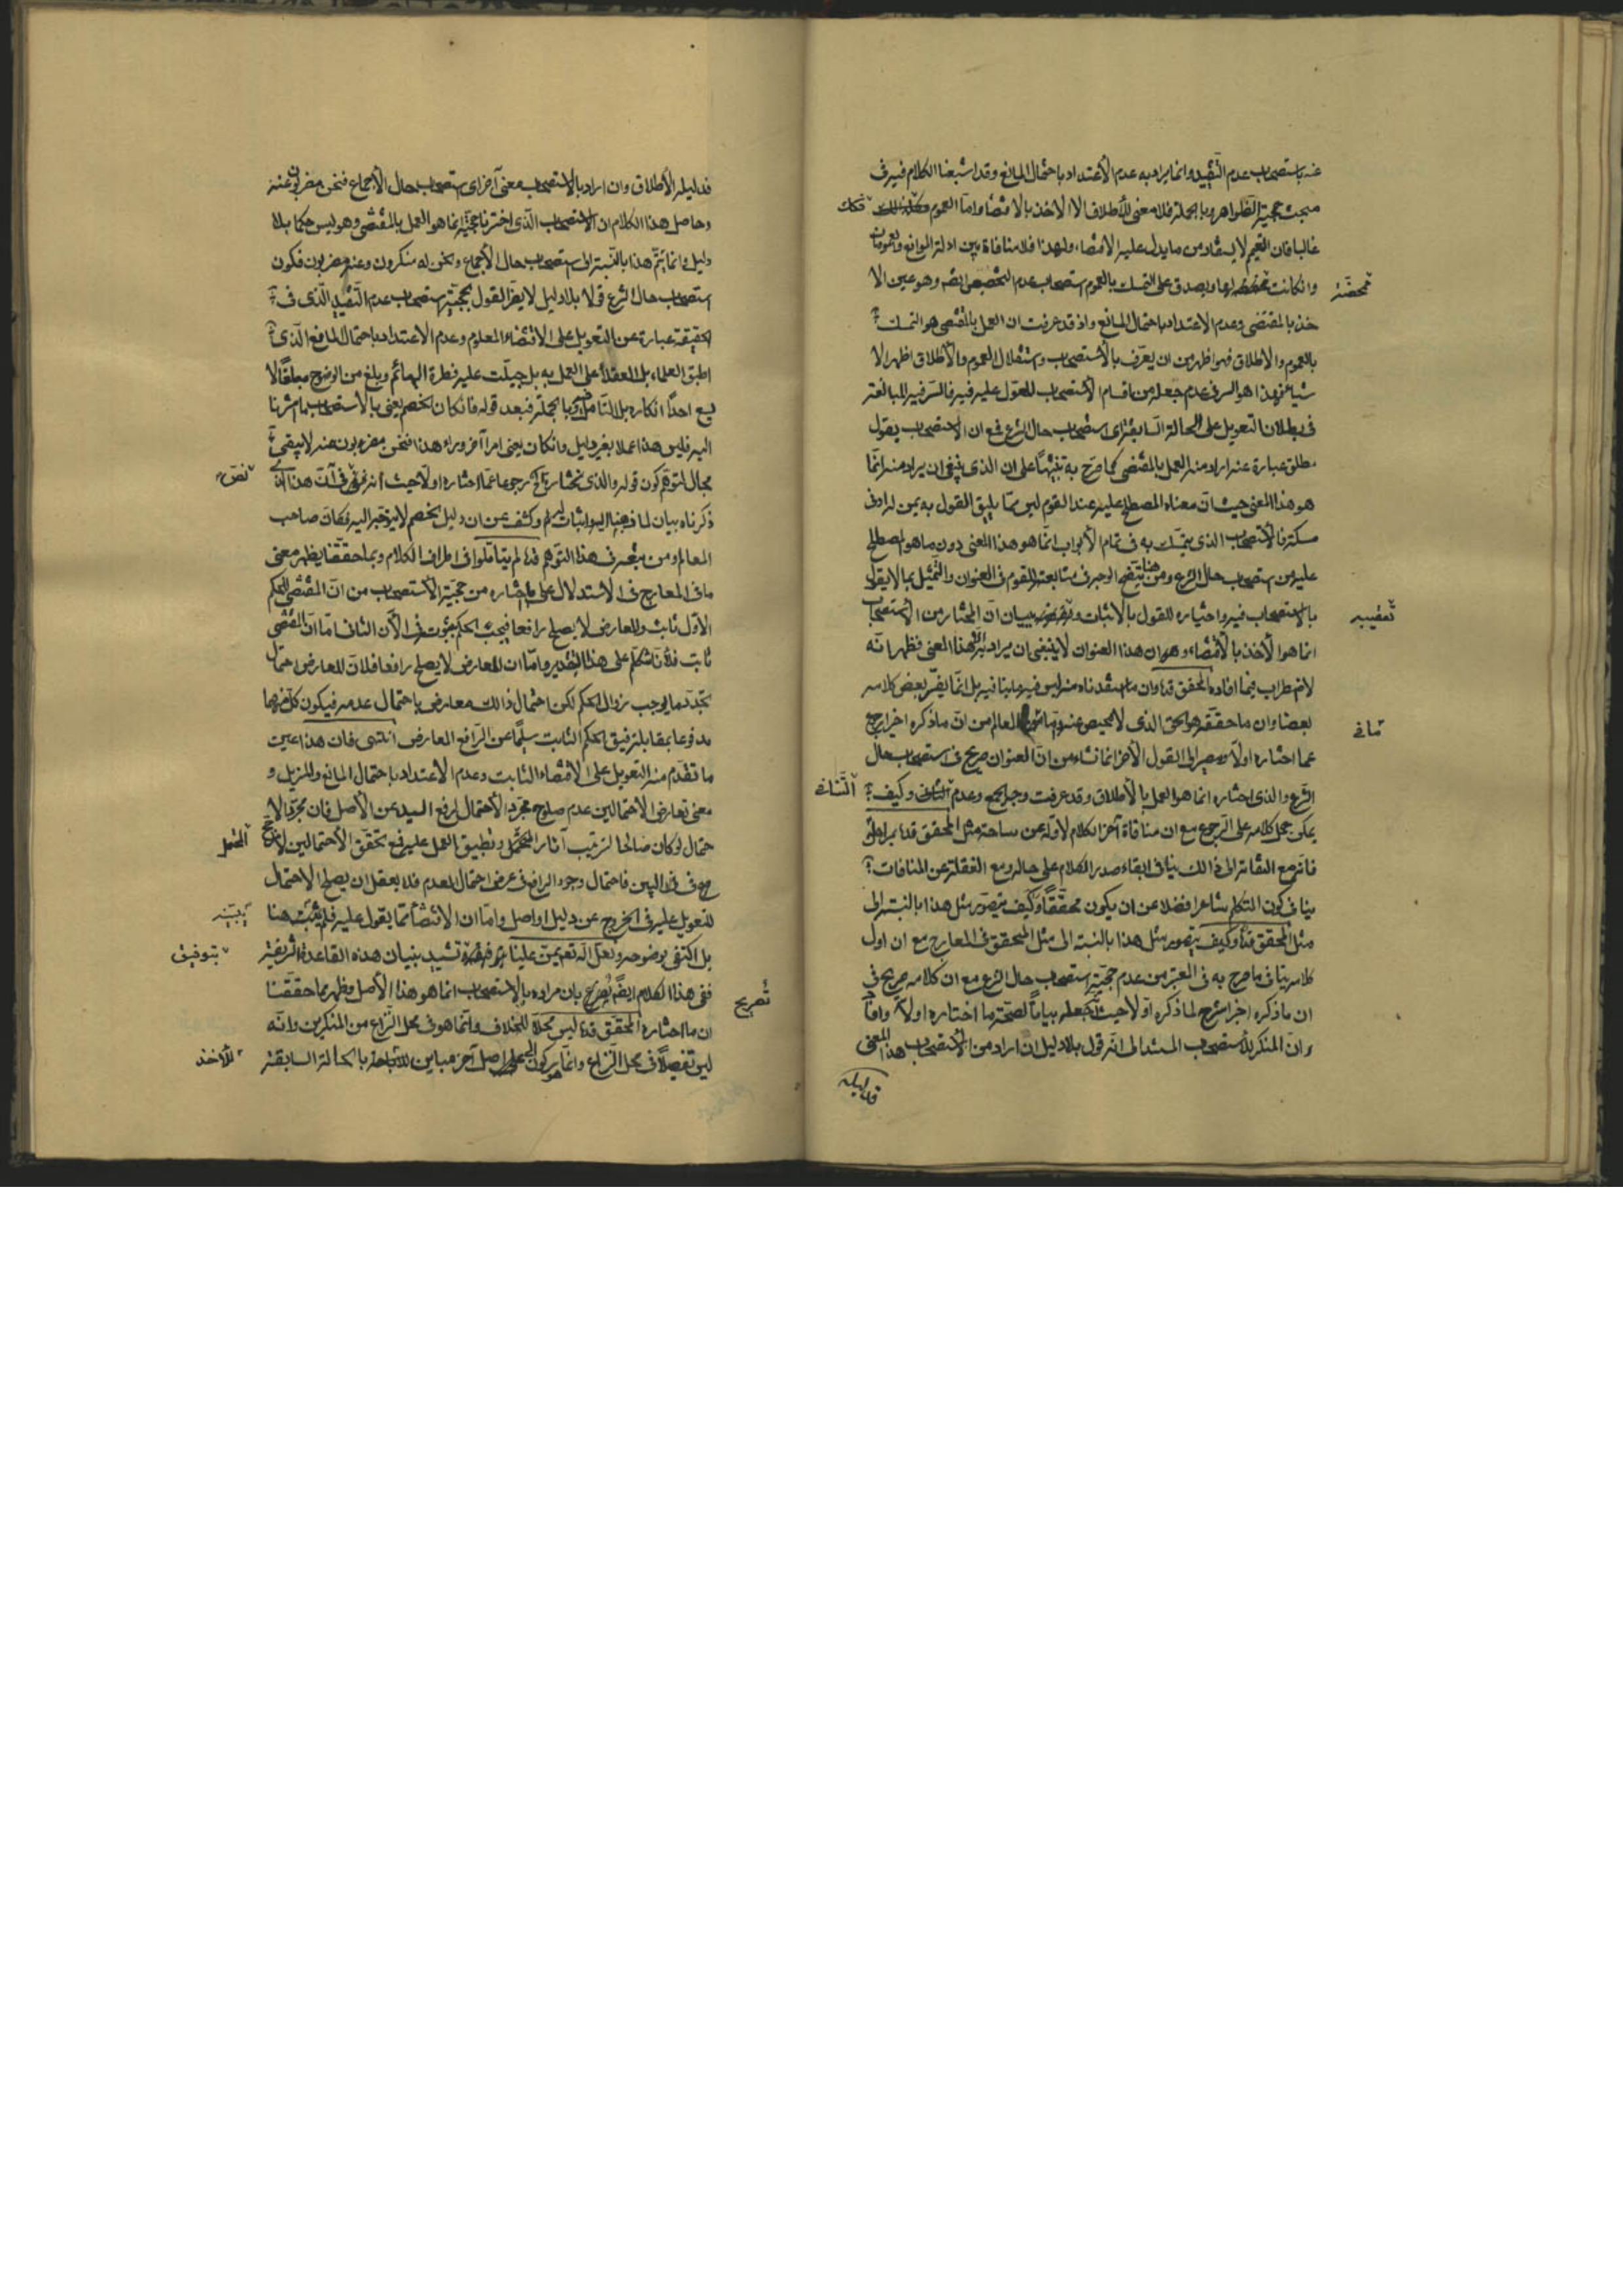 عنه باستصحاب عدم التقييد وانما يراد به عدم الأعتداد باحتمال المانع وقد اشبعنا الكلام فيه فى
مبحث حجية الظواهر وبالجملة فلا معنى للأطلاق الا الأخذ بالاقتضاء واما العموم فكك
غالبا فان التعميم لا يستفاد من ما يدل عليه الاقتضاء ولهذا فلا منافاة بين ادلة الموانع والعمومات
وانكانت مخصصة لها ويصدق على التمسك بالعموم استصحاب عدم التخصيص ايضم وهو عين الا
خذ بالمقتضى وعدم الاعتداد باحتمال المانع واذ قد عرفت ان العمل بالمقتضى هو التمسك
بالعموم والاطلاق فهو اظهر من ان يعرف بالأستصحاب واستقلال العموم والأطلاق اظهر الا
شياء فهذا هو السر فى عدم جعله من اقسام الأستصحاب المعول عليه فيه فالسر فيه المبالغة
فى بطلان التعويل على الحالة السابقة اى استصحاب حال الشرع فمع ان الاستصحاب بقول
مطلق عبارة عنه اراد منه العمل بالمقتضى كما صرح به تنبيها على ان الذى ينبغى ان يراد منه انما
هو هذا المعنى حيث ان معناه المصطلح عليه عند القوم ليس مما يليق القول به بمن له ادنى
مسكة فالأستصحاب الذى يتمسك به فى تمام الأبواب انما هو هذا المعنى دون ما هو المصطلح
عليه من استصحاب حال الشرع ومن هنا يتضح الوجه فى متابعته للقوم فى العنوان والتمثيل بما لا يقول
بالاستصحاب فيه واختياره للقول بالأثبات وتعقيبه ببيان ان المختار من الأستصحاب
انما هو الأخذ بالأقتضاء وهو ان هذا العنوان لا ينبغى ان يراد به الا هذا المعنى فظهر انه
لا اضطراب فيما افاده المحقق قده وان ما استفدناه منه ليس فيه ما ينافيه بل انما يفسر بعض كلامه
بعضا وان ما حققه هو الحق الذى لا محيص عنه واما فى المعالم من ان ما ذكره اخيرا رجع
عما اختاره اولا ومصير الى القول الأخر انما نشاء من ان العنوان صريح فى استصحاب حال
الشرع والذى اختاره انما هو العمل بالأطلاق وقد عرفت وجه الجمع وعدم التنافى وكيف
يمكن حمل كلامه على الرجوع مع ان منافاة آخر الكلام لأوله عن ساحة مثل المحقق قده بمراحل
فانه مع التفاته الى ذالك ينافى ابقاء صدر الكلام على حاله ومع الغفلة عن المنافات
ينافى كون المتكلم شاعرا فضلا عن ان يكون محققا وكيف يتصور مثل هذا بالنسبة الى
مثل المحقق قده وكيف يتصور مثل هذا بالنسبة الى مثل المحقق فى المعارج مع ان اول
كلامه ينافى ما صرح به فى المعتبر من عدم حجية استصحاب حال الشرع مع ان كلامه صريح فى
ان ما ذكره اخيرا شرح لما ذكره اولا حيث جعله بيانا لصحة ما اختاره اولا
وان المنكر للأستصحاب المستند الى انه قول بلا دليل ان اراد من الأستصحاب هذا المعنى
فدليله
محضة
تعقيبه
مافى
التنافى
فدليله الأطلاق وان اراد بالاستصحاب معنى آخر اى استصحاب حال الأجماع فنحن مضربون عنه
وحاصل هذا الكلام ان الاستصحاب الذى اخترنا حجيته انما هو العمل بالمقتضى وهو ليس حكما بلا
دليل وانما يتم هذا بالنسبة الى استصحاب حال الأجماع ونحن له منكرون وعنه مضربون فكون
استصحاب حال الشرع قولا بلا دليل لا يضر القول بحجية استصحاب عدم التقييد الذى فى
الحقيقة عبارة عن التعويل على الاقتضاء المعلوم وعدم الاعتداد باحتمال المانع الذى
اطبق العلماء بل العقلاء على العمل به بل جبلت عليه فطرة البهائم وبلغ من الوضوح مبلغا لا
يسع احدا انكاره بلا التأمل وبالجملة فبعد قوله فانكان الخصم يعنى بالأستصحاب ما اشرنا
اليه فليس هذا عملا بغير دليل وانكان يعنى امرا آخر وراء هذا فنحن مضربون عنه لا يبقى
مجال لتوهم كون قوله والذى نختار رجوعا عما اختاره اولا حيث انه نص فى ان هذا الذى
ذكرناه بيان لما ذهبنا اليه واثبات له وكشف عن ان دليل الخصم لا يتوجه اليه فكان صاحب
المعالم ومن تبعه فى هذا التوهم قده لم يتأملوا فى اطراف الكلام وبما حققنا يظهر معنى
ما فى المعارج فى الأستدلال على ما اختاره من حجية الأستصحاب من ان المقتضى للحكم
الأول ثابت والمعارض لا يصلح رافعا فيجب الحكم بثبوته فى الآن الثانى اما ان المقتضى
ثابت فلأنا نتكلم على هذا التقدير واما ان المعارض لا يصلح رافعا فلان المعارض احتمال
تجدد ما يوجب زوال الحكم لكن احتمال ذالك معارض باحتمال عدمه فيكون كل منهما
مدفوعا بمقابله فيبقى الحكم الثابت سليما عن الرافع المعارض انتهى فان هذا عين
ما تقدم منه التعويل على الاقتضاء الثابت وعدم الأعتداد باحتمال المانع والمزيل و
معنى تعارض الأحتمالين عدم صلوح مجرد الأحتمال لرفع اليد عن الأصل فان مجرد الا
حتمال لو كان صالحا لترتيب آثار المحتمل وتطبيق العمل عليه فمع تحقق الأحتمالين
فى البين فاحتمال وجود الرافع فى عرض احتمال العدم فلا يعقل ان يصلح الاحتمال
للتعويل عليه فى الخروج عن دليل او اصل واما ان الاقتضاء مما يعول عليه فلم يثبته هنا
بل اكتفى بوضوحه ولعل الله تعم يمن علينا بتوفيق تشييد بنيان هذه القاعدة الشريفة
ففى هذا الكلام ايضم تصريح بان مراده بالاستصحاب انما هو هذا الأصل وظهر بما حققنا
ان ما اختاره المحقق قده ليس محلا للخلاف وانما هو فى محل النزاع من المنكرين وانه
ليس تفصيلا فى محل النزاع وانما هو ركون الى اصل آخر مباين للأخذ بالحالة السابقة
نص
المحتمل
يثبته
بتوفيق
تصريح
للأخذ